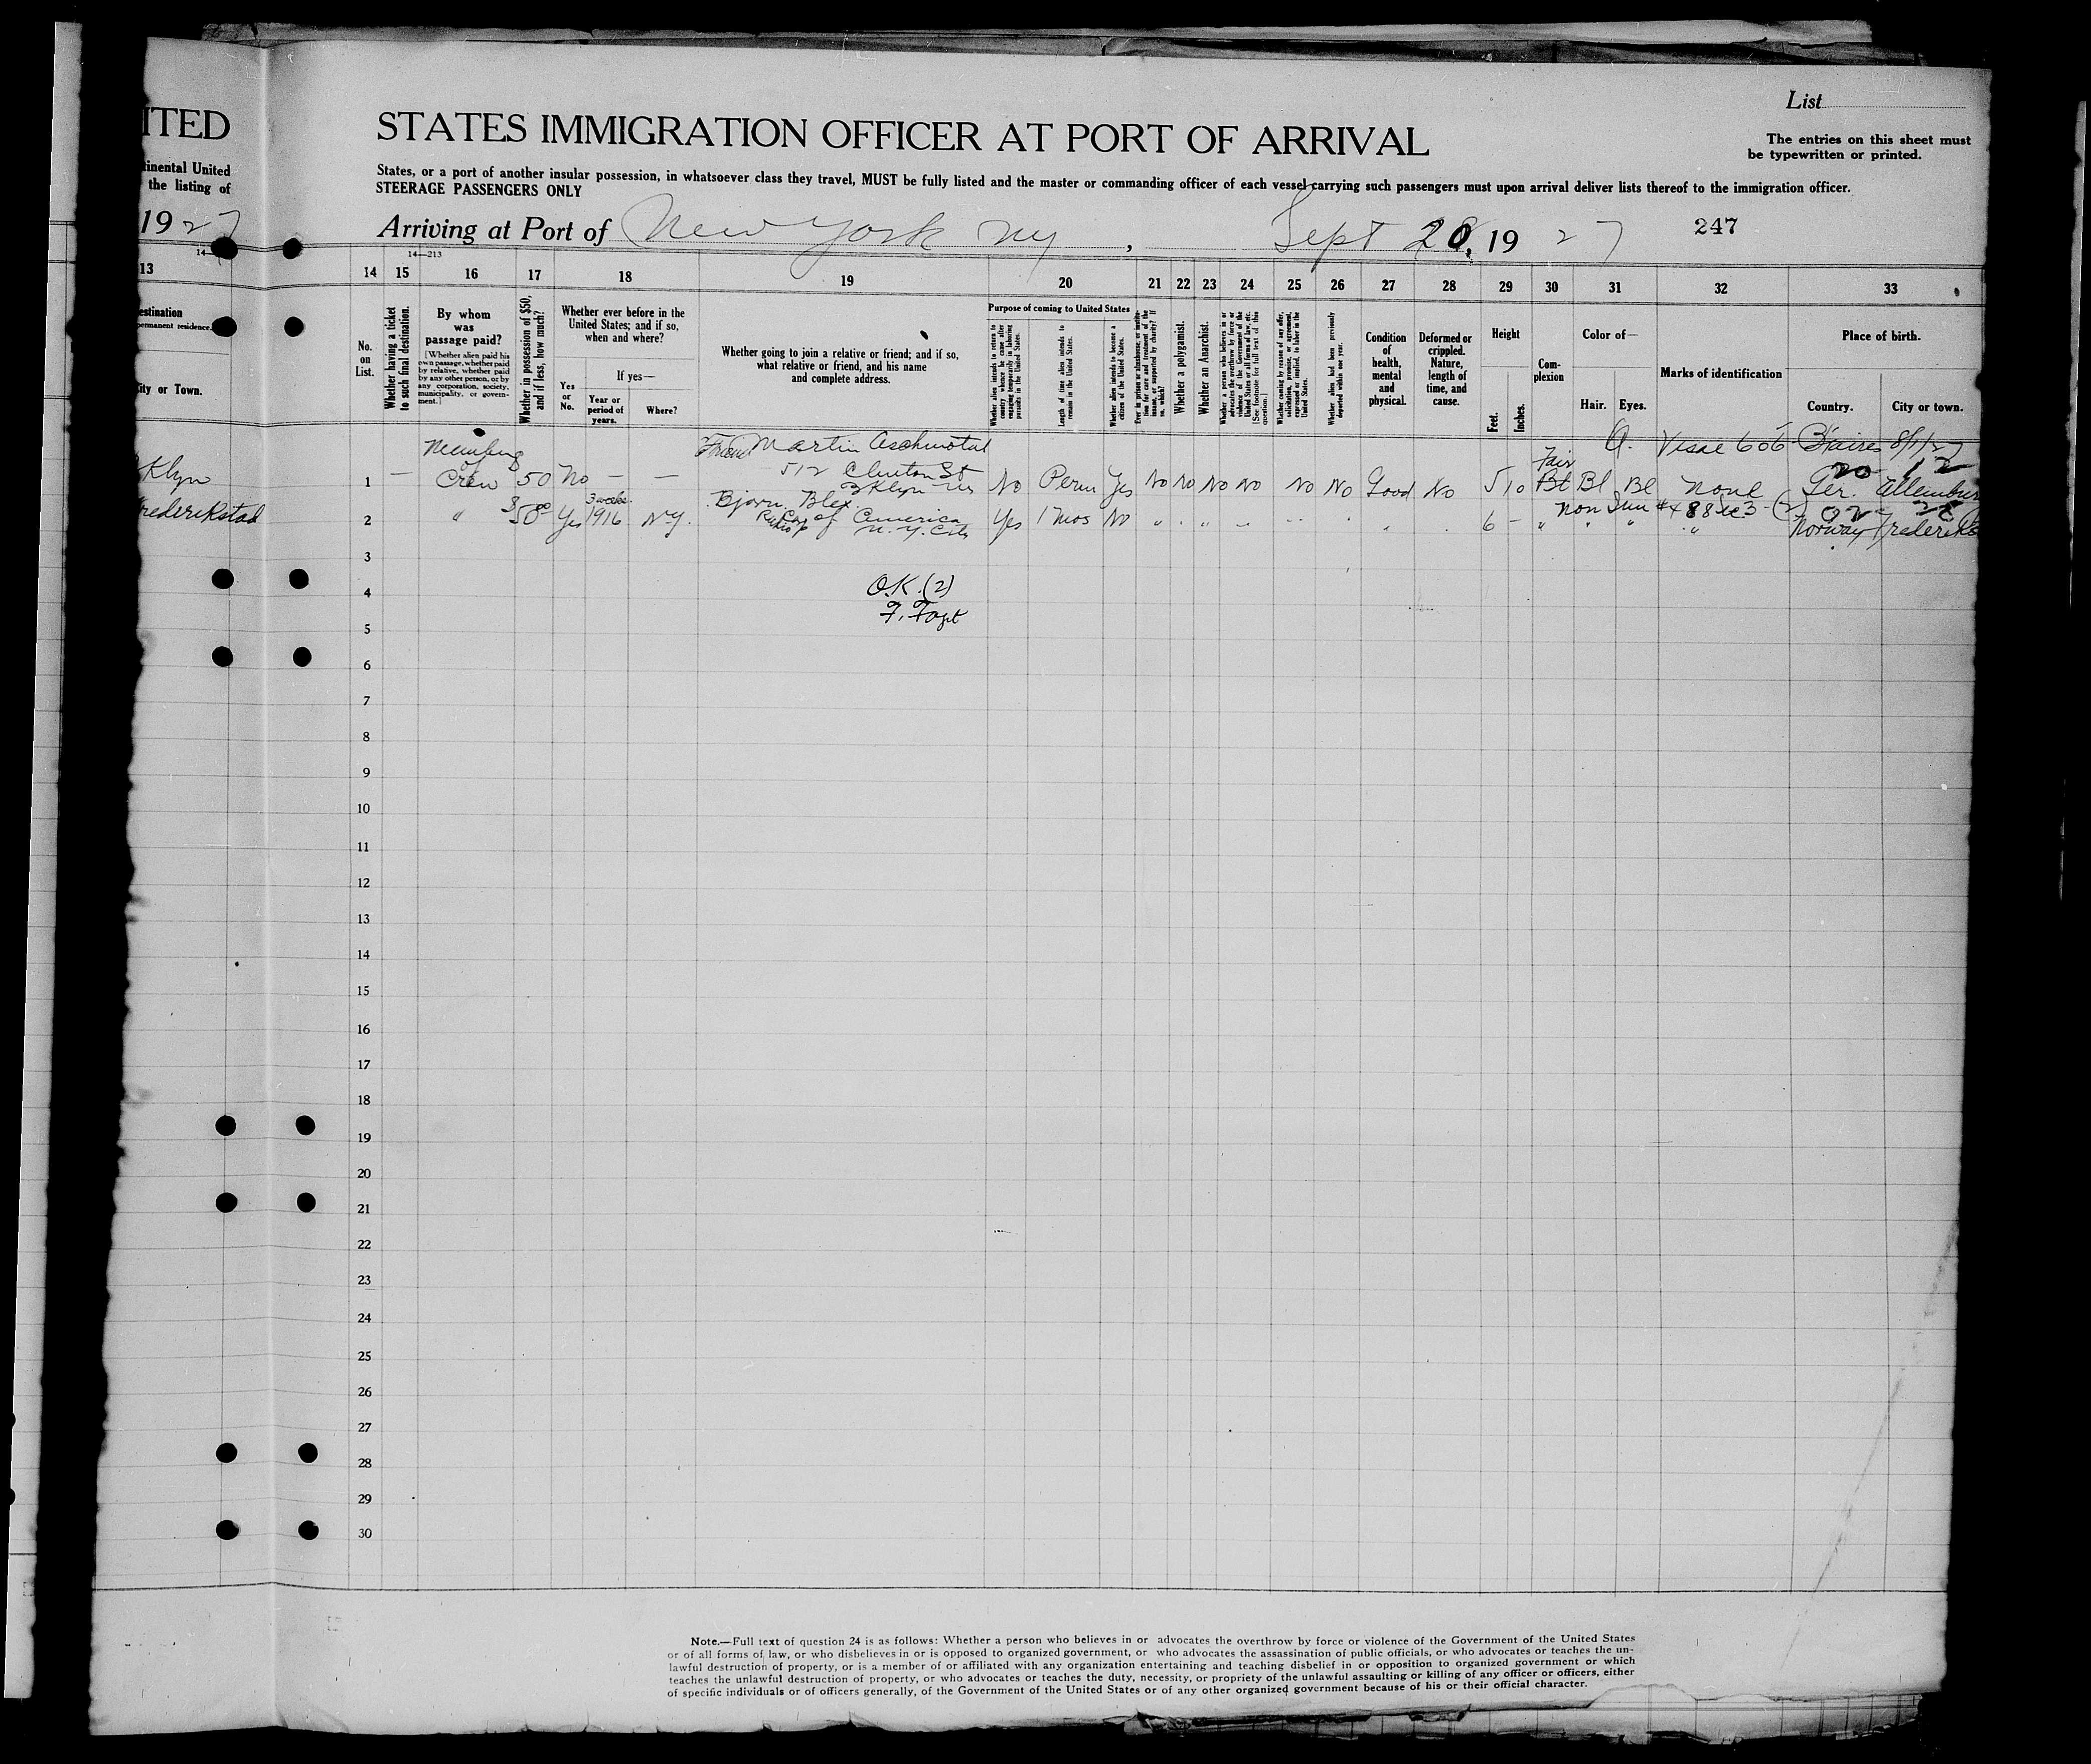 List
ITED STATES IMMIGRATION OFFICER AT PORT OF ARRIVAL
The entries on this sheet must
be typewritten or printed.
tinental United States, or a port of another insular possession, in whatsoever class they travel, MUST be fully listed and the master or commanding officer of each vessel carrying such passengers must upon arrival deliver lists thereof to the immigration officer.
the listing of STEERAGE PASSENGERS ONLY
1927 Arriving at Port of New York NY, Sept 28, 1927 247
14—213
13 14 15 16 17 18 19 20 21 22 23 24 25 26 27 28 29 30 31 32 33
estination
permanent residence.
City or Town.
No. on List.
Whether having a ticket to such final destination.
By whom was passage paid?
[Whether alien paid his own passage, whether paid by relative, whether paid by any other person, or by any corporation, society, municipality, or government.]
Whether in possession of $50, and if less, how much?
Whether ever before in the United States; and if so, when and where?
Yes or No.
If yes—
Year or period of years.
Where?
Whether going to join a relative or friend; and if so, what relative or friend, and his name and complete address.
Purpose of coming to United States
Whether alien intends to return to country whence he came after engaging temporarily in laboring pursuits in the United States.
Length of time alien intends to remain in the United States.
Whether alien intends to become a citizen of the United States.
Ever in prison or almshouse, or institution for care and treatment of the insane, or supported by charity? If so, which?
Whether a polygamist.
Whether an Anarchist.
Whether a person who believes in or advocates the overthrow by force or violence of the Government of the United States or all forms of law, etc. [See footnote for full text of this question.]
Whether coming by reason of any offer, solicitation, promise, or agreement, expressed or implied, to labor in the United States.
Whether alien had been previously deported within one year.
Condition of health, mental and physical.
Deformed or crippled. Nature, length of time, and cause.
Height
Feet. Inches.
Complexion
Color of—
Hair. Eyes.
Marks of identification
Place of birth.
Country. City or town.
Friend Martin
Visae 606 B'aires 8/1/27
Klyn 1 — Member of Crew 50 No — — 512 Clinton St Bklyn NY No Perm Yes No No No No No No Good No 5 10 Fair Bl Bl none Ger.
20 12
rederikstad 2 " $50 00 Yes 3 weeks 1916 N.Y. Bjorn Blex
of America N.Y. City Yes 1 mos No " " " " " " " " 6 - " " " " Norway Frederiks
3
4 O.K. (2)
5
6
7
8
9
10
11
12
13
14
15
16
17
18
19
20
21
22
23
24
25
26
27
28
29
30
Note.—Full text of question 24 is as follows: Whether a person who believes in or advocates the overthrow by force or violence of the Government of the United States
or of all forms of law, or who disbelieves in or is opposed to organized government, or who advocates the assassination of public officials, or who advocates or teaches the un-
lawful destruction of property, or is a member of or affiliated with any organization entertaining and teaching disbelief in or opposition to organized government or which
teaches the unlawful destruction of property, or who advocates or teaches the duty, necessity, or propriety of the unlawful assaulting or killing of any officer or officers, either
of specific individuals or of officers generally, of the Government of the United States or of any other organized government because of his or their official character.